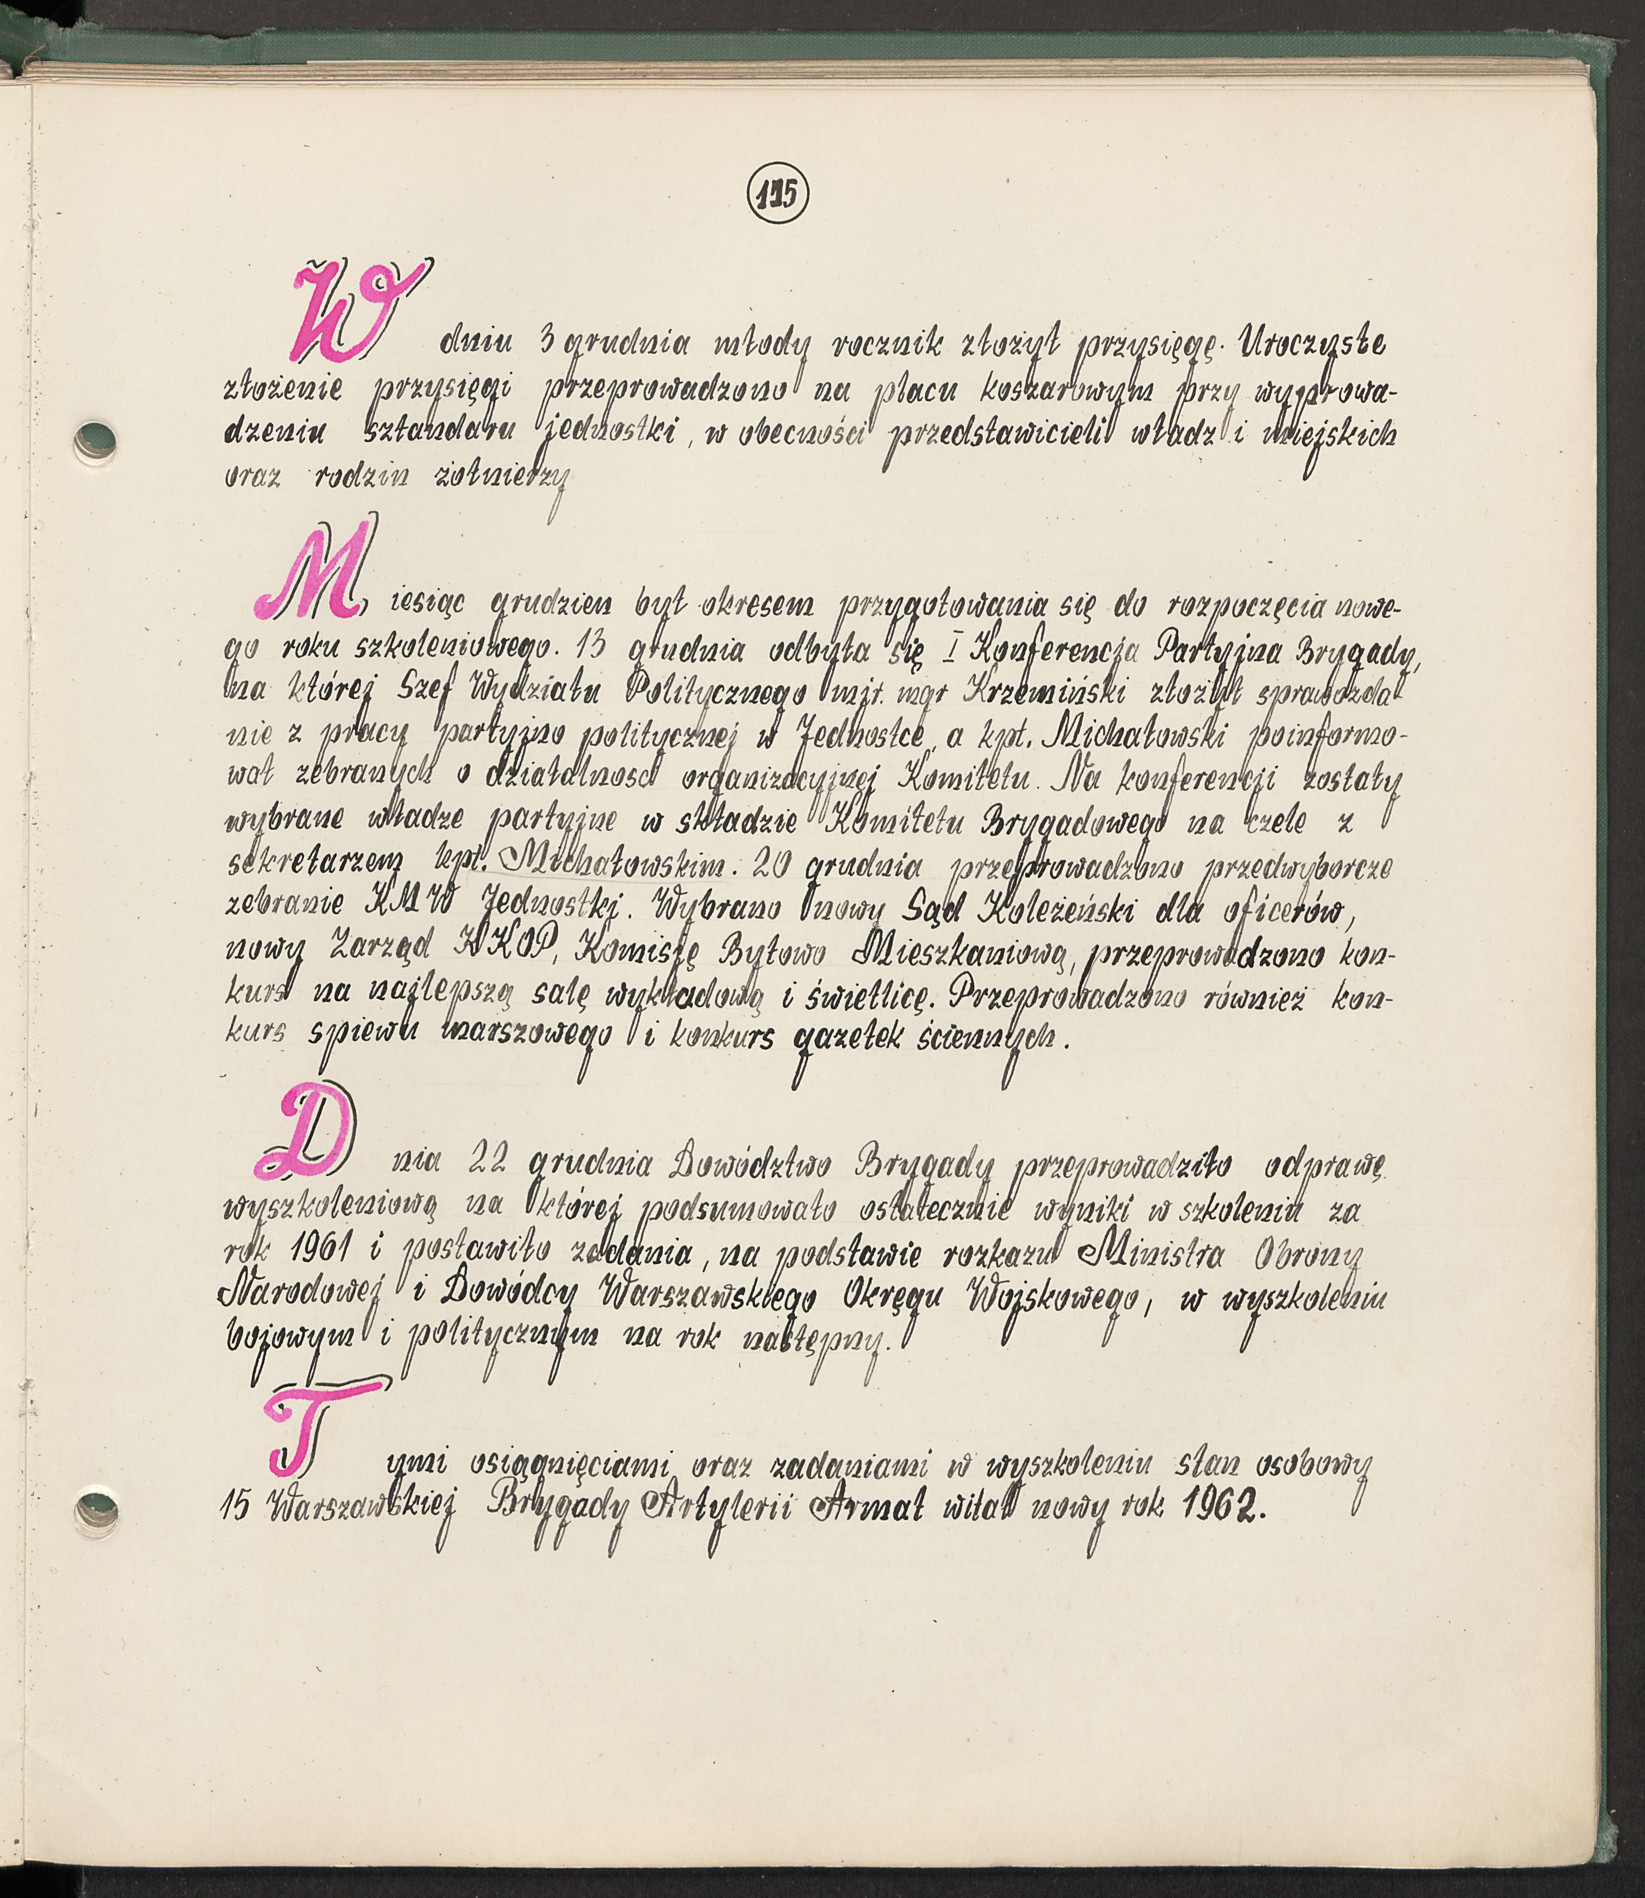 115
W dniu 3 grudnia młody rocznik złożył przysięgę. Uroczyste
złożenie przysięgi przeprowadzono na placu koszarowym przy wyprowa-
dzeniu sztandaru jednostki, w obecności przedstawicieli władz i miejskich
oraz rodzin żołnierzy
Miesiąc grudzien był okresem przygotowania się do rozpoczęcia nowe-
go roku szkoleniowego. 13 grudnia odbyła się I Konferencja Partyjna Brygady,
na której Szef Wydziału Politycznego mjr. mgr Krzemiński złożył sprawozda-
nie z pracy partyjno politycznej w Jednostce, a kpt. Michałowski poinformo-
wał zebranych o działalnosci organizacyjnej Komitetu. Na konferencji zostały
wybrane władze partyjne w składzie Komitetu Brygadowego na czele z
sekretarzem kpt. Michałowskim. 20 grudnia przeprowadzono przedwyborcze
zebranie KMW Jednostki. Wybrano nowy Sąd Koleżeński dla oficerów,
nowy Zarząd KKOP, Komisję Bytowo Mieszkaniową, przeprowadzono kon-
kurs na najlepszą salę wykładową i świetlicę. Przeprowadzono również kon-
kurs spiewu marszowego i konkurs gazetek ściennych.
Dnia 22 grudnia Dowództwo Brygady przeprowadziło odprawę
wyszkoleniową na której podsumowało ostatecznie wyniki w szkoleniu za
rok 1961 i postawiło zadania, na podstawie rozkazu Ministra Obrony
Narodowej i Dowódcy Warszawskiego Okręgu Wojskowego, w wyszkoleniu
bojowym i politycznym na rok następny.
Tymi osiągnięciami oraz zadaniami w wyszkoleniu stan osobowy
15 Warszawskiej Brygady Artylerii Armat witał nowy rok 1962.